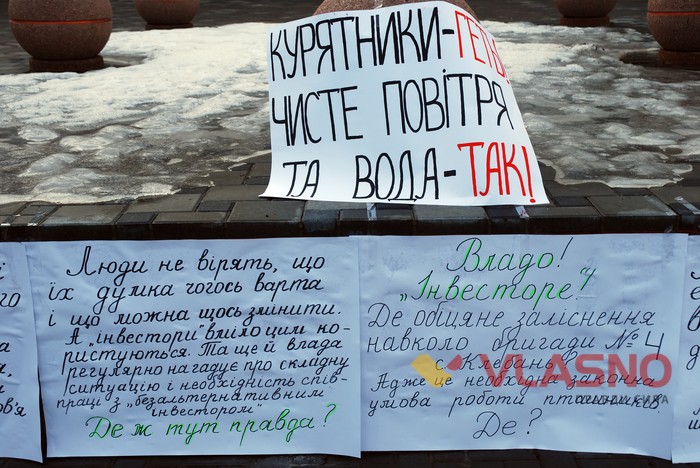 КУРЯТНИКИ-ГЕТЬ!
ЧИСТЕ ПОВІТРЯ
ТА ВОДА-ТАК!
Люди не вірять, що
їх думка чогось варта
і що можна щось змінити.
А „інвестори" вміло цим ко-
ристуються. Та ще й влада
регулярно нагадує про складну
ситуацію і необхідність спів-
праці з „безальтернативним
інвестором"
Де ж тут правда?
Владо!
„Інвесторе"!
Де обіцяне заліснення
навколо бригади №4
с. Клебань?
Адже це необхідна законна
умова роботи пташників.
Де?
VLASNO